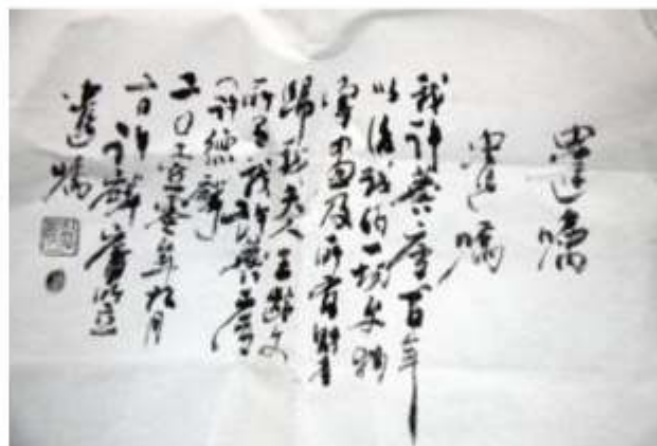 遗嘱
遗嘱
我许麟庐百年
以后我的一切文物
字画及所有财产
归我夫人王龄文
所有我许麟庐
(许德麟)
二〇年九月
日许麟庐
遗嘱